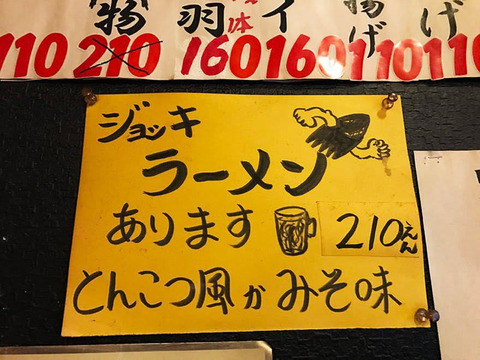 物 羽 体 イ 揚げ げ
110 210 160 160 110 110
ジョッキ
ラーメン
あります
210えん
とんこつ風か みそ味